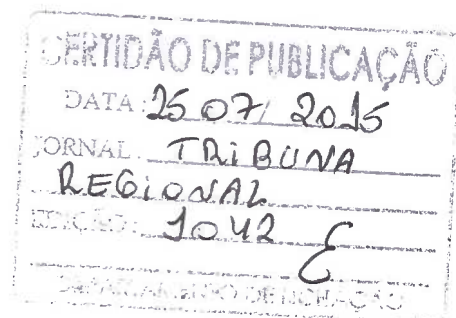 CERTIDÃO DE PUBLICAÇÃO
DATA: 25 07/ 2015
JORNAL TRIBUNA
REGIONAL
EDIÇÃO: 1042
DE LICITAÇÃO